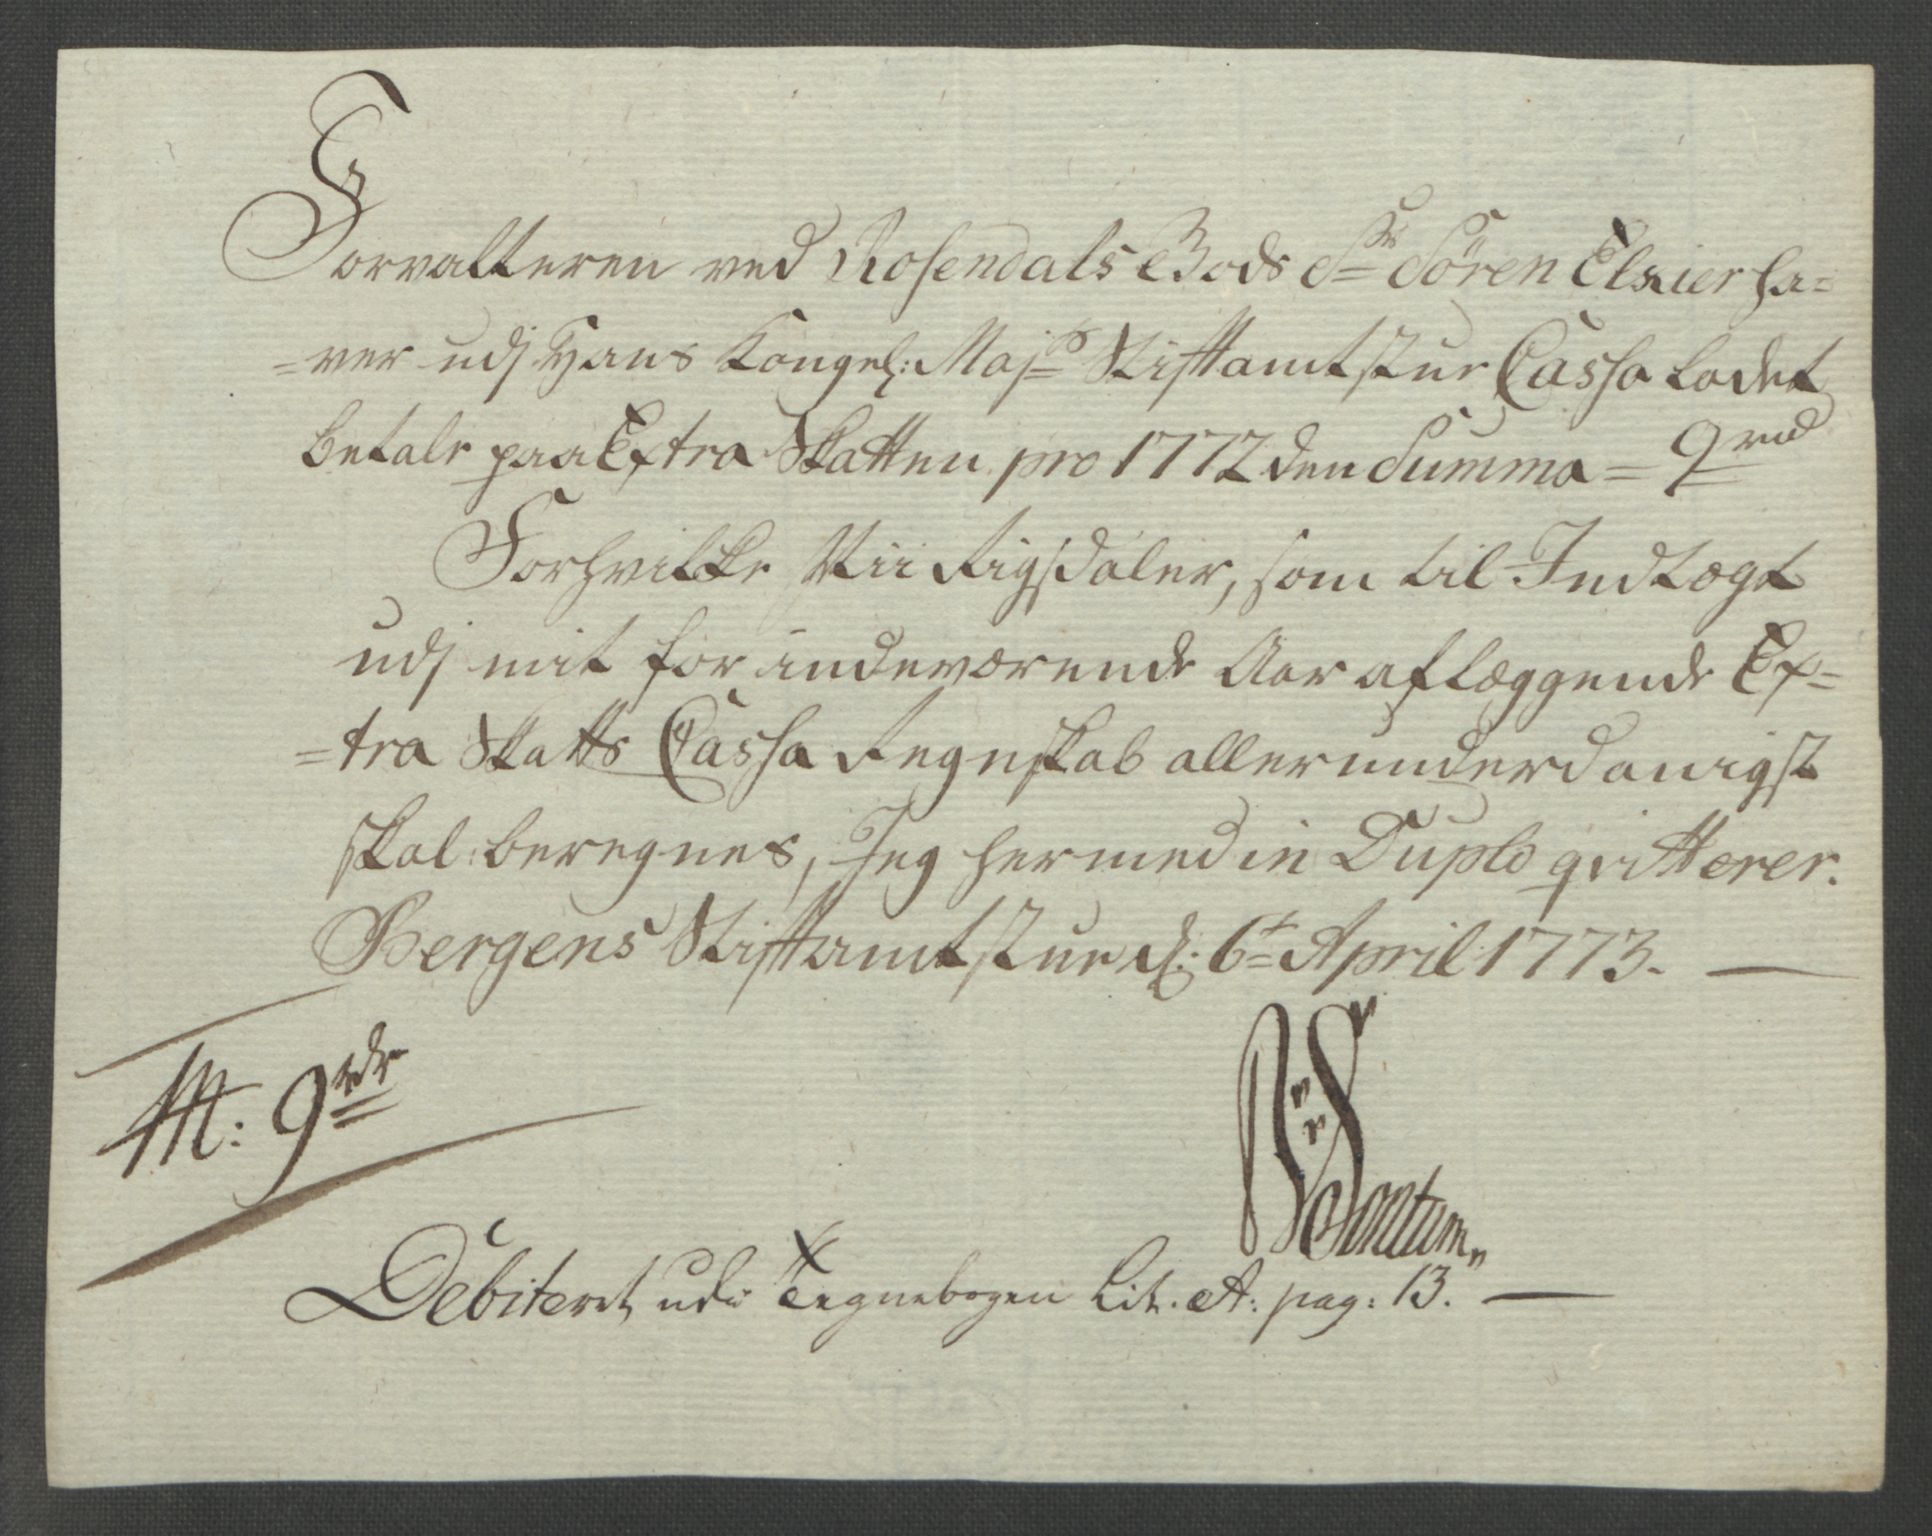 Forvalteren ved Rosendals Gods Sr Sören Elsier ha=
=ver udj Hans Kongel: Majts Stiftamtstue Cassa ladet
betale paa Extra Skatten pro 1772 den Summa = 9 rd
Forhvilke Nii Rigsdaler, som til Indtægt
udj mit for indeværende Aar aflæggende Ex=
=tra Skatts Cassa Regnskab allerunderdanigst
skal beregnes, Jeg hermed in Duplo qvitterer.
Bergens Stiftamtstue d: 6t April 1773.
9 rdr
Debiteret udi Tegnebogen Lit. A: pag: 13.